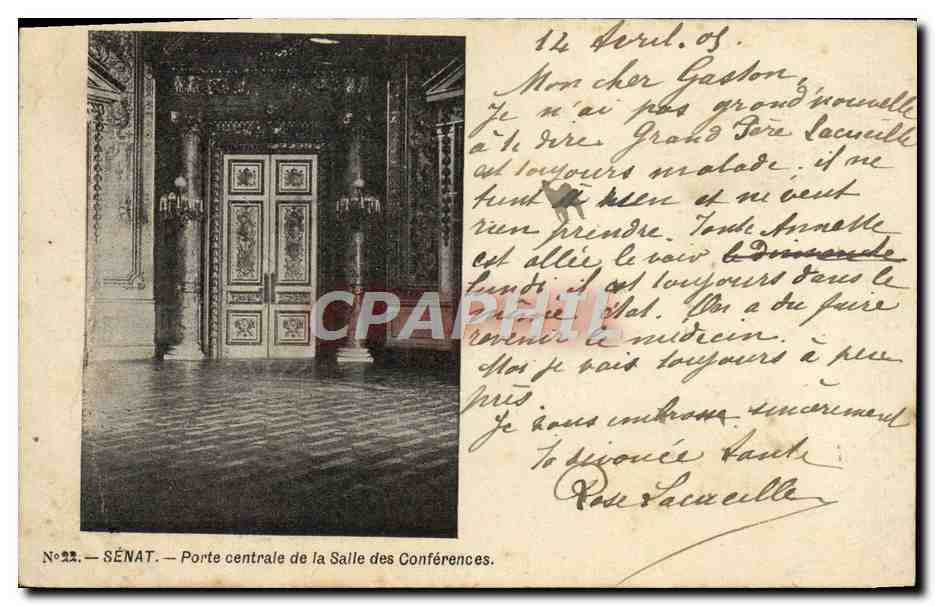 14 Avril. 05.
Mon cher Gaston,
Je n'ai pas grand'nouvelle
à te dire Grand Père Lacueille
est toujours malade. il ne
tient à rien et ne veut
rien prendre. Tante Annette
est allée le voir le dimanche
lundi il est toujours dans le
même état. On a du faire
revenir le médecin.
Moi je vais toujours à peu
près.
Je vous embrasse sincèrement
Ta dévouée tante
Rose Lacueille
CAPHIL
No 22. — SÉNAT. — Porte centrale de la Salle des Conférences.